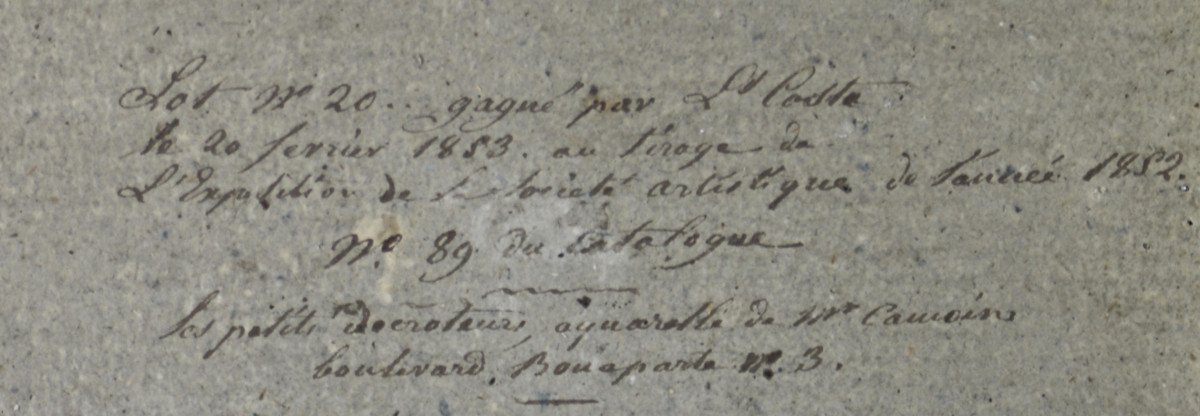 Lot No 20.. gagné par Lt Coste
le 20 ferrier 1853. au tirage de
L'Exposition de la Société artistique de l'année 1852.
No. 89 du Catalogue
Les petits décroteurs, aquarelle de Mr Camoin
boulevard Bonaparte No. 3.